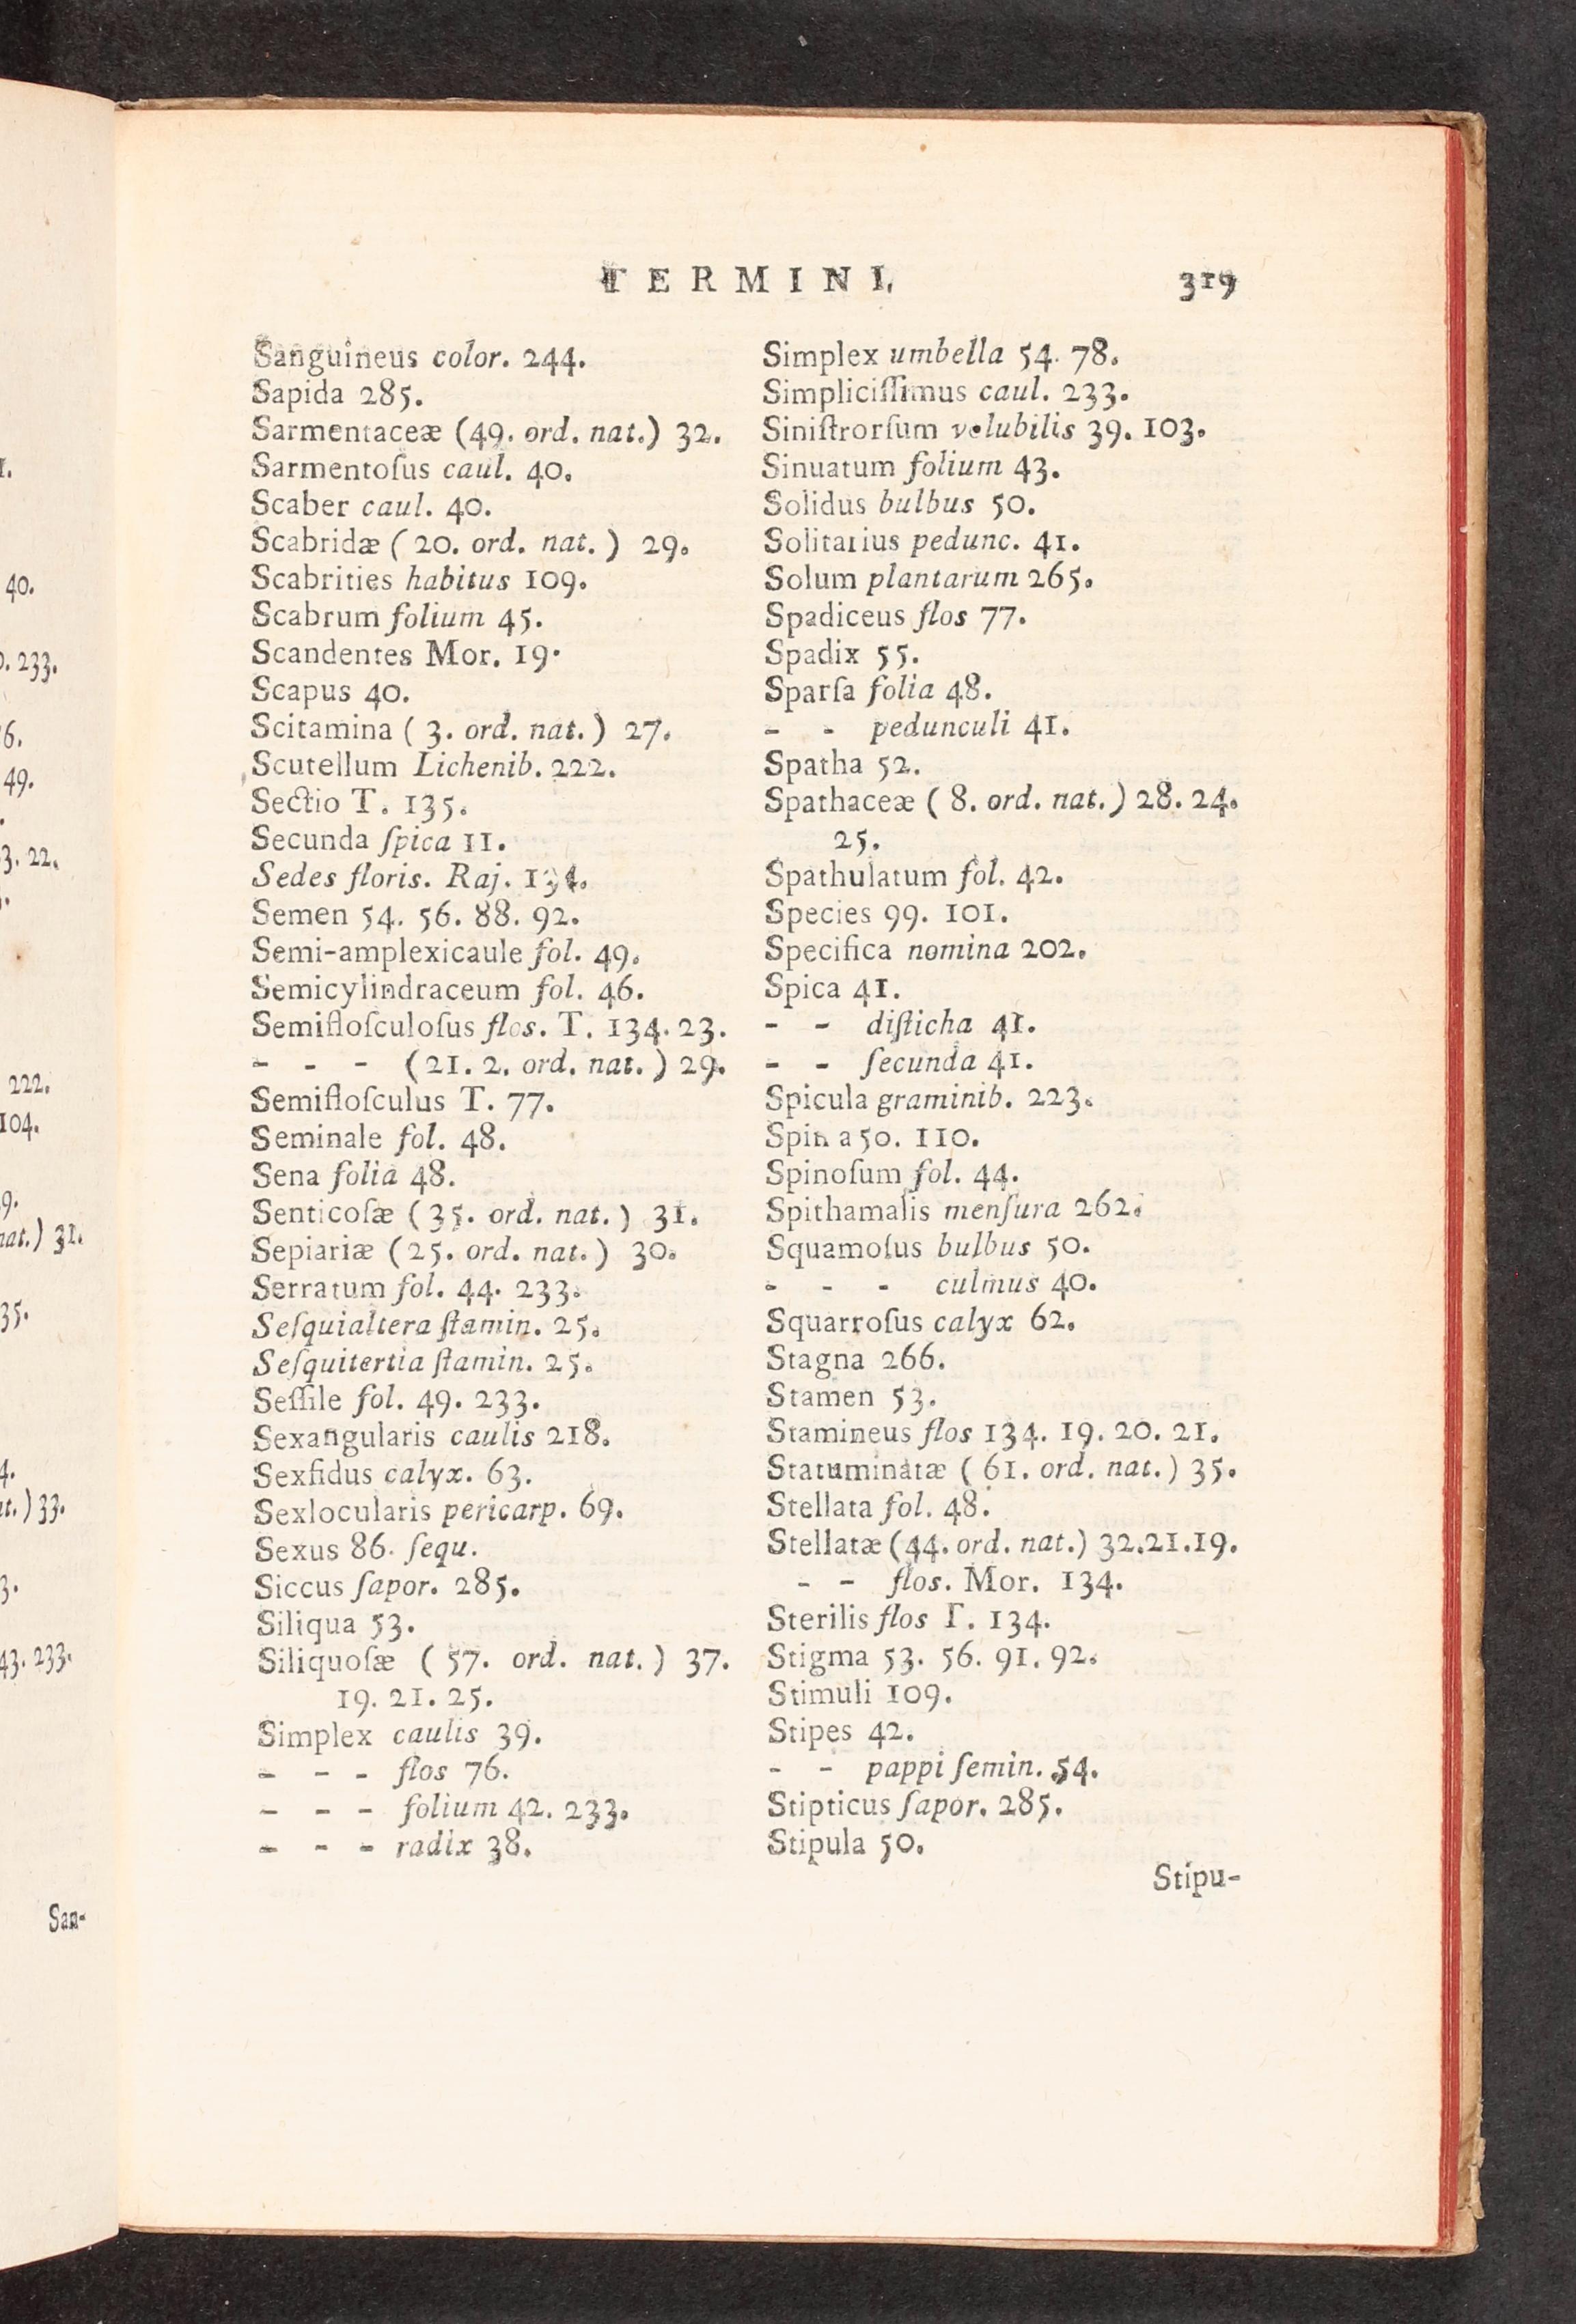 TERMINI. 319
Sanguineus color. 244.
Sapida 285.
Sarmentaceæ (49. ord. nat.) 32.
Sarmentoſus caul. 40.
Scaber caul. 40.
Scabridæ ( 20. ord. nat. ) 29.
Scabrities habitus 109.
Scabrum folium 45.
Scandentes Mor. 19.
Scapus 40.
Scitamina ( 3. ord. nat. ) 27.
Scutellum Lichenib. 222.
Sectio T. 135.
Secunda ſpica 11.
Sedes floris. Raj. 134.
Semen 54. 56. 88. 92.
Semi-amplexicaule fol. 49.
Semicylindraceum fol. 46.
Semifloſculoſus flos. T. 134. 23.
- - - (21. 2. ord. nat. ) 29.
Semifloſculus T. 77.
Seminale fol. 48.
Sena folia 48.
Senticoſæ ( 35. ord. nat. ) 31.
Sepiariæ ( 25. ord. nat. ) 30.
Serratum fol. 44. 233.
Seſquialtera ſtamin. 25.
Seſquitertia ſtamin. 25.
Seſſile fol. 49. 233.
Sexangularis caulis 218.
Sexfidus calyx. 63.
Sexlocularis pericarp. 69.
Sexus 86. ſequ.
Siccus ſapor. 285.
Siliqua 53.
Siliquoſæ ( 57. ord. nat. ) 37.
19. 21. 25.
Simplex caulis 39.
- - - flos 76.
- - - folium 42. 233.
- - - radix 38.
Simplex umbella 54. 78.
Simpliciſſimus caul. 233.
Siniſtrorſum volubilis 39. 103.
Sinuatum folium 43.
Solidus bulbus 50.
Solitarius pedunc. 41.
Solum plantarum 265.
Spadiceus flos 77.
Spadix 55.
Sparſa folia 48.
- - pedunculi 41.
Spatha 52.
Spathaceæ ( 8. ord. nat. ) 28. 24.
25.
Spathulatum fol. 42.
Species 99. 101.
Specifica nomina 202.
Spica 41.
- - diſticha 41.
- - ſecunda 41.
Spicula graminib. 223.
Spina 50. 110.
Spinoſum fol. 44.
Spithamalis menſura 262.
Squamoſus bulbus 50.
- - - culmus 40.
Squarroſus calyx 62.
Stagna 266.
Stamen 53.
Stamineus flos 134. 19. 20. 21.
Statuminatæ ( 61. ord. nat. ) 35.
Stellata fol. 48.
Stellatæ (44. ord. nat.) 32.21.19.
- - flos. Mor. 134.
Sterilis flos T. 134.
Stigma 53. 56. 91. 92.
Stimuli 109.
Stipes 42.
- - pappi ſemin. 54.
Stipticus ſapor. 285.
Stipula 50.
Stipu-